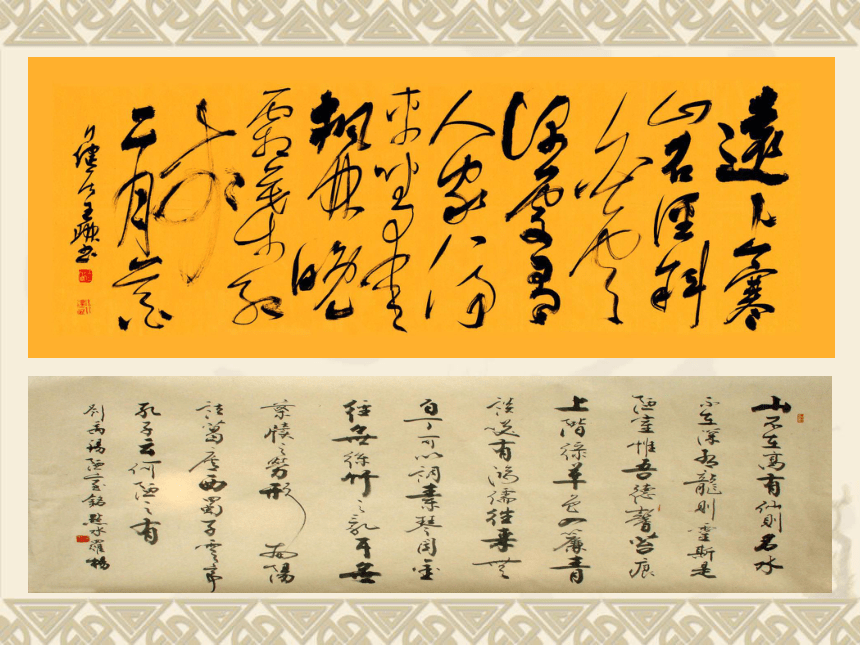 遠上寒
山石徑斜
白雲
深處有
人家停
車坐愛
楓林晚
霜葉紅
於
二月花
王書
山不在高有仙則名水
不在深有龍則靈斯是
陋室惟吾德馨苔痕
上階綠草色入簾青
談笑有鴻儒往來無
白丁可以調素琴閱金
經無絲竹之亂耳無
案牘之勞形南陽
諸葛廬西蜀子雲亭
孔子云何陋之有
劉禹錫陋室銘水羅楊